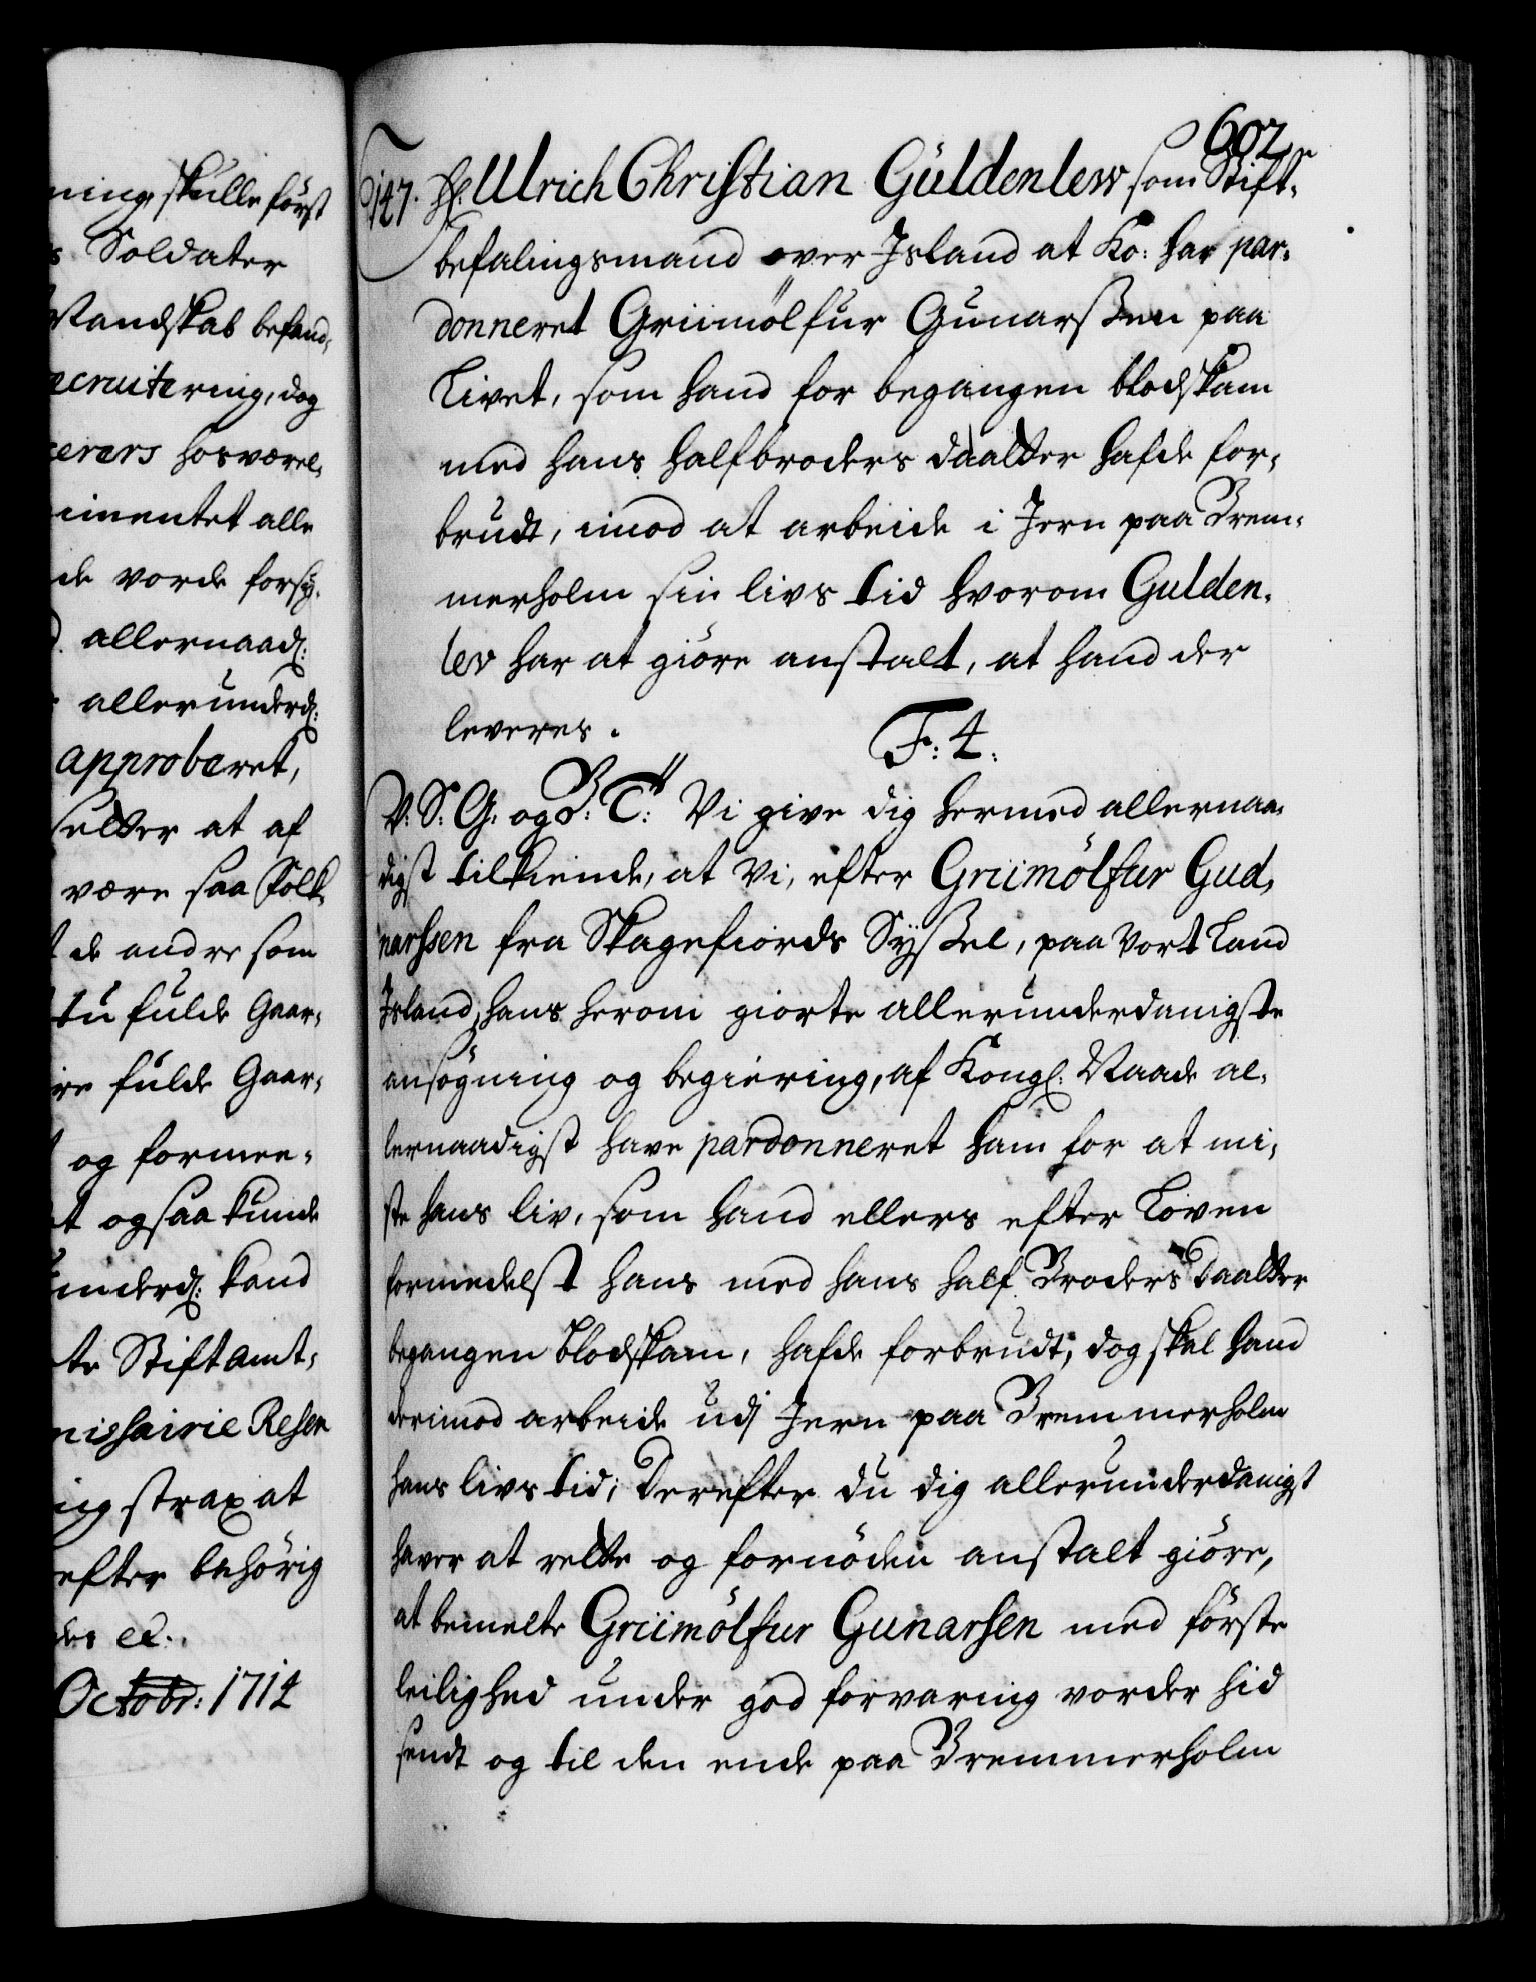 ning, skulle først
Soldater
Mandskab befand,
recruitering, dog
hosværel,
imentet alle
de vorde forsÿ,
allernaad:
allerunderd:
approberet,
selder at af
være saa Folk,
de andre som
tu fulde Gaar,
re fulde Gaar,
og formee,
t ogsaa kunde
underd: kand
te Stiftamt,
missairie Resen
ing strax at
efter behörig
des etc:.
Octobr: 1714
602
147. Hr: Ulrich Christian Güldenlew som Stift,
befalingsmand over Island at Ko: har par,
donneret Griimölfur Gunarßen paa
Livet, som hand for begangen blodskam
med hans halfbroders daatter hafde for,
brudt, imod at arbeide i Jern paa Brem,
merholm sin livs tid hvorom Gulden,
lew har at giöre anstalt, at hand der
leveres.
F: 4:
V: S: G: og B: T: Vi give dig hermed allernaa,
digst tilkiende, at Vi, efter Griimölfur Gud,
narssen fra Skagefiords Sÿßel, paa vort Land
Island, hans herom giorte allerunderdanigste
ansögning og begiering, af Kongl: Naade al,
lernaadigst have pardonneret ham for at mi,
ste hans liv, som hand ellers efter Loven
formedelst hans med hans half Broders Daatter
begangen blodskam, hafde forbrudt, dog skal hand
derimod arbeide udj Jern paa Bremmerholm
hans livs tid; Derefter du dig allerunderdanigst
haver at rette og fornöden anstalt giöre,
at bemelte Griimölfur Gunarsen med förste
leilighed under god forvaring vorder hid
sendt og til den ende paa Bremmerholm